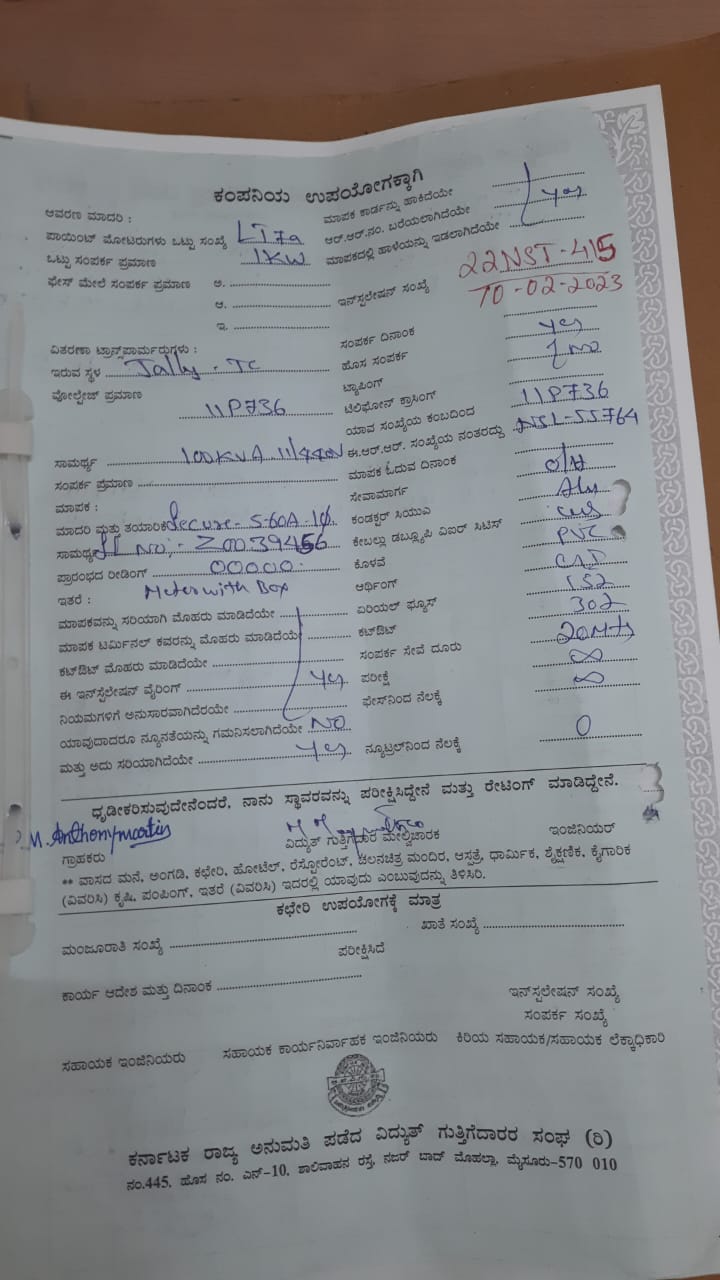 ಕಂಪನಿಯ ಉಪಯೋಗಕ್ಕಾಗಿ
ಆವರಣ ಮಾದರಿ :
ಮಾಪಕ ಕಾರ್ಡನ್ನು ಹಾಕಿದೆಯೇ
ಪಾಯಿಂಟ್ ಮೋಟರುಗಳು ಒಟ್ಟು ಸಂಖ್ಯೆ LT7a
ಆರ್.ಆರ್.ನಂ. ಬರೆಯಲಾಗಿದೆಯೇ yes
ಒಟ್ಟು ಸಂಪರ್ಕ ಪ್ರಮಾಣ 1KW
ಮಾಪಕದಲ್ಲಿ ಹಾಳೆಯನ್ನು ಇಡಲಾಗಿದೆಯೇ
ಫೇಸ್ ಮೇಲೆ ಸಂಪರ್ಕ ಪ್ರಮಾಣ ಅ.
22NST-415
ಆ.
ಇನ್‌ಸ್ಪಲೇಷನ್ ಸಂಖ್ಯೆ 10-02-2023
ಇ.
ವಿತರಣಾ ಟ್ರಾನ್ಸ್‌ಪಾರ್ಮರುಗಳು :
ಸಂಪರ್ಕ ದಿನಾಂಕ
ಇರುವ ಸ್ಥಳ Jally-TC
ಹೊಸ ಸಂಪರ್ಕ yes
ವೋಲ್ಟೇಜ್ ಪ್ರಮಾಣ 11P736
ಟ್ಯಾಪಿಂಗ್
NO
ಟೆಲಿಫೋನ್ ಕ್ರಾಸಿಂಗ್
ಯಾವ ಸಂಖ್ಯೆಯ ಕಂಬದಿಂದ 11P736
ಸಾಮರ್ಥ್ಯ 100KVA 11/440V
ಈ.ಆರ್.ಆರ್. ಸಂಖ್ಯೆಯ ನಂತರದ್ದು NSL-55764
ಸಂಪರ್ಕ ಪ್ರಮಾಣ
ಮಾಪಕ ಓದುವ ದಿನಾಂಕ
ಮಾಪಕ :
ಸೇವಾಮಾರ್ಗ O/H
ಮಾದರಿ ಮತ್ತು ತಯಾರಿಕೆ Secure-5-60A-1Ø
ಕಂಡಕ್ಟರ್ ಸಿಯುವಿ Alu
ಸಾಮರ್ಥ್ಯ Sl No:- Z0039456
ಕೇಬಲ್ಲು ಡಬ್ಲ್ಯೂಪಿ ವಿಐರ್ ಸಿಟಿಸ್
ಪ್ರಾರಂಭದ ರೀಡಿಂಗ್ 00000.
ಕೊಳವೆ PVC
ಇತರೆ : Meter with Box
ಆರ್ಥಿಂಗ್
ಮಾಪಕವನ್ನು ಸರಿಯಾಗಿ ಮೊಹರು ಮಾಡಿದೆಯೇ
ಏರಿಯಲ್ ಫ್ಯೂಸ್ 152
ಮಾಪಕ ಟರ್ಮಿನಲ್ ಕವರನ್ನು ಮೊಹರು ಮಾಡಿದೆಯೇ
ಕಟ್‌ಔಟ್ 302
ಕಟ್‌ಔಟ್ ಮೊಹರು ಮಾಡಿದೆಯೇ
ಸಂಪರ್ಕ ಸೇವೆ ದೂರು 20Mts
ಈ ಇನ್‌ಸ್ಟಲೇಷನ್ ವೈರಿಂಗ್ yes
ಪರೀಕ್ಷೆ ∞
ನಿಯಮಗಳಿಗೆ ಅನುಸಾರವಾಗಿದೆರಯೇ
ಫೇಸ್‌ನಿಂದ ನೆಲಕ್ಕೆ ∞
ಯಾವುದಾದರೂ ನ್ಯೂನತೆಯನ್ನು ಗಮನಿಸಲಾಗಿದೆಯೇ NO
ಮತ್ತು ಅದು ಸರಿಯಾಗಿದೆಯೇ yes
ನ್ಯೂಟ್ರಲ್‌ನಿಂದ ನೆಲಕ್ಕೆ 0
ಧೃಡೀಕರಿಸುವುದೇನೆಂದರೆ, ನಾನು ಸ್ಥಾವರವನ್ನು ಪರೀಕ್ಷಿಸಿದ್ದೇನೆ ಮತ್ತು ರೇಟಿಂಗ್ ಮಾಡಿದ್ದೇನೆ.
M. Anthonymartin
ಗ್ರಾಹಕರು
ವಿದ್ಯುತ್ ಗುತ್ತಿಗೆದಾರ ಮೇಲ್ವಿಚಾರಕ
ಇಂಜಿನಿಯರ್
** ವಾಸದ ಮನೆ, ಅಂಗಡಿ, ಕಛೇರಿ, ಹೋಟೆಲ್, ರೆಸ್ಟೋರೆಂಟ್, ಚಲನಚಿತ್ರ ಮಂದಿರ, ಆಸ್ಪತ್ರೆ, ಧಾರ್ಮಿಕ, ಶೈಕ್ಷಣಿಕ, ಕೈಗಾರಿಕ
(ವಿವರಿಸಿ) ಕೃಷಿ, ಪಂಪಿಂಗ್, ಇತರೆ (ವಿವರಿಸಿ) ಇದರಲ್ಲಿ ಯಾವುದು ಎಂಬುವುದನ್ನು ತಿಳಿಸಿರಿ.
ಕಛೇರಿ ಉಪಯೋಗಕ್ಕೆ ಮಾತ್ರ
ಮಂಜೂರಾತಿ ಸಂಖ್ಯೆ
ಖಾತೆ ಸಂಖ್ಯೆ
ಪರೀಕ್ಷಿಸಿದೆ
ಕಾರ್ಯ ಆದೇಶ ಮತ್ತು ದಿನಾಂಕ
ಇನ್‌ಸ್ಪಲೇಷನ್ ಸಂಖ್ಯೆ
ಸಂಪರ್ಕ ಸಂಖ್ಯೆ
ಸಹಾಯಕ ಇಂಜಿನಿಯರು ಸಹಾಯಕ ಕಾರ್ಯನಿರ್ವಾಹಕ ಇಂಜಿನಿಯರು ಕಿರಿಯ ಸಹಾಯಕ/ಸಹಾಯಕ ಲೆಕ್ಕಾಧಿಕಾರಿ
ಕರ್ನಾಟಕ ರಾಜ್ಯ ಅನುಮತಿ ಪಡೆದ ವಿದ್ಯುತ್ ಗುತ್ತಿಗೆದಾರರ ಸಂಘ (ರಿ)
ನಂ.445, ಹೊಸ ನಂ. ಎನ್-10, ಶಾಲಿವಾಹನ ರಸ್ತೆ, ನಜರ್ ಬಾದ್ ಮೊಹಲ್ಲಾ, ಮೈಸೂರು-570 010